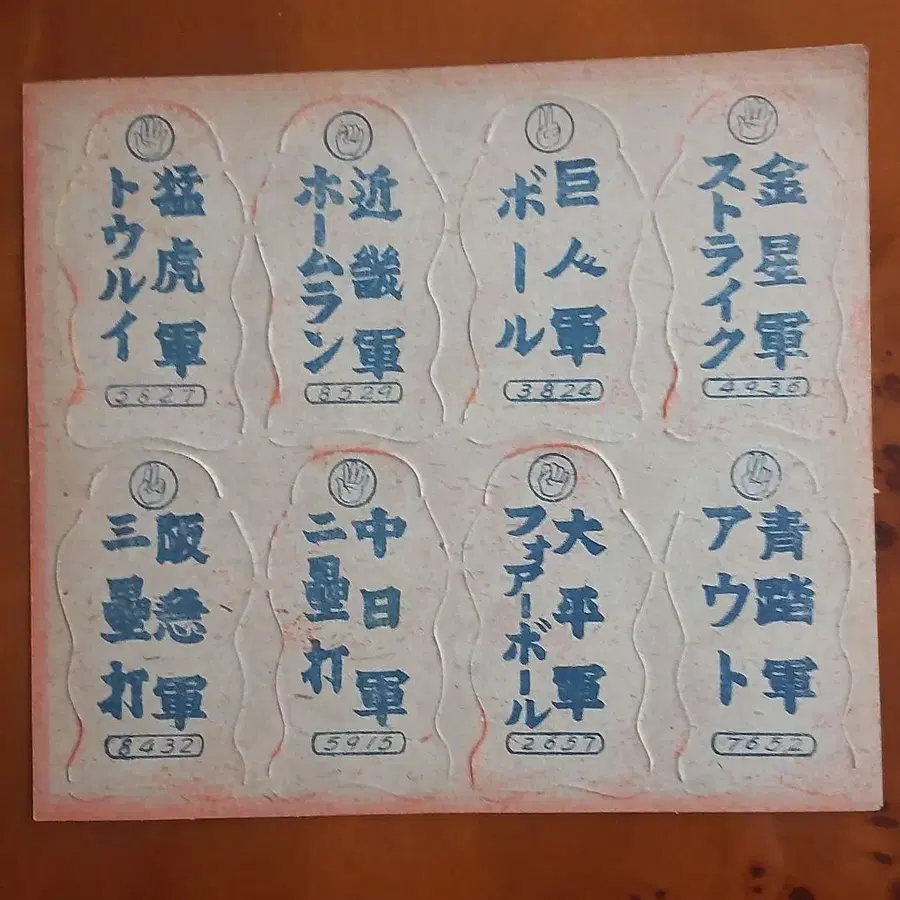 金星軍
ストライク
4936
巨人軍
ボール
3824
近畿軍
ホームラン
8529
猛虎軍
トウルイ
5827
青踏軍
アウト
7652
大平軍
フォアーボール
2657
中日軍
二壘打
5915
阪急軍
三壘打
8432